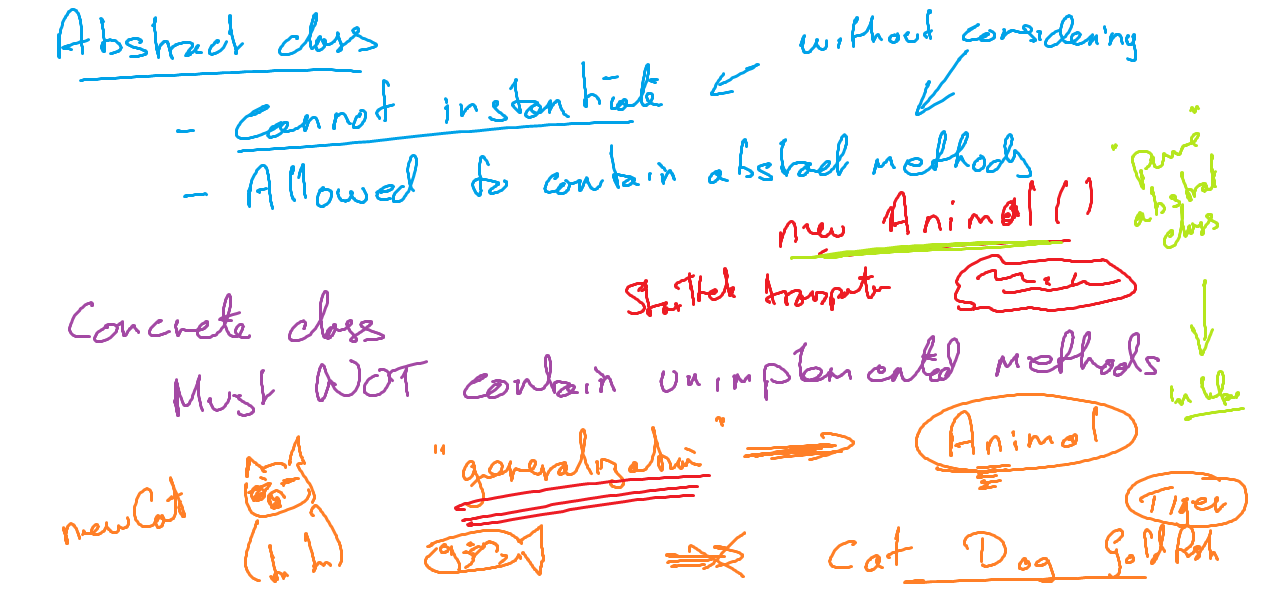 Abstract class
without considering
- Cannot instantiate
- Allowed to contain abstract methods
"pure"
abstract
class
new Animal()
StarTrek transporter
Concrete class
Must NOT contain unimplemented methods
"generalization"
Animal
new Cat
Tiger
Cat Dog Goldfish